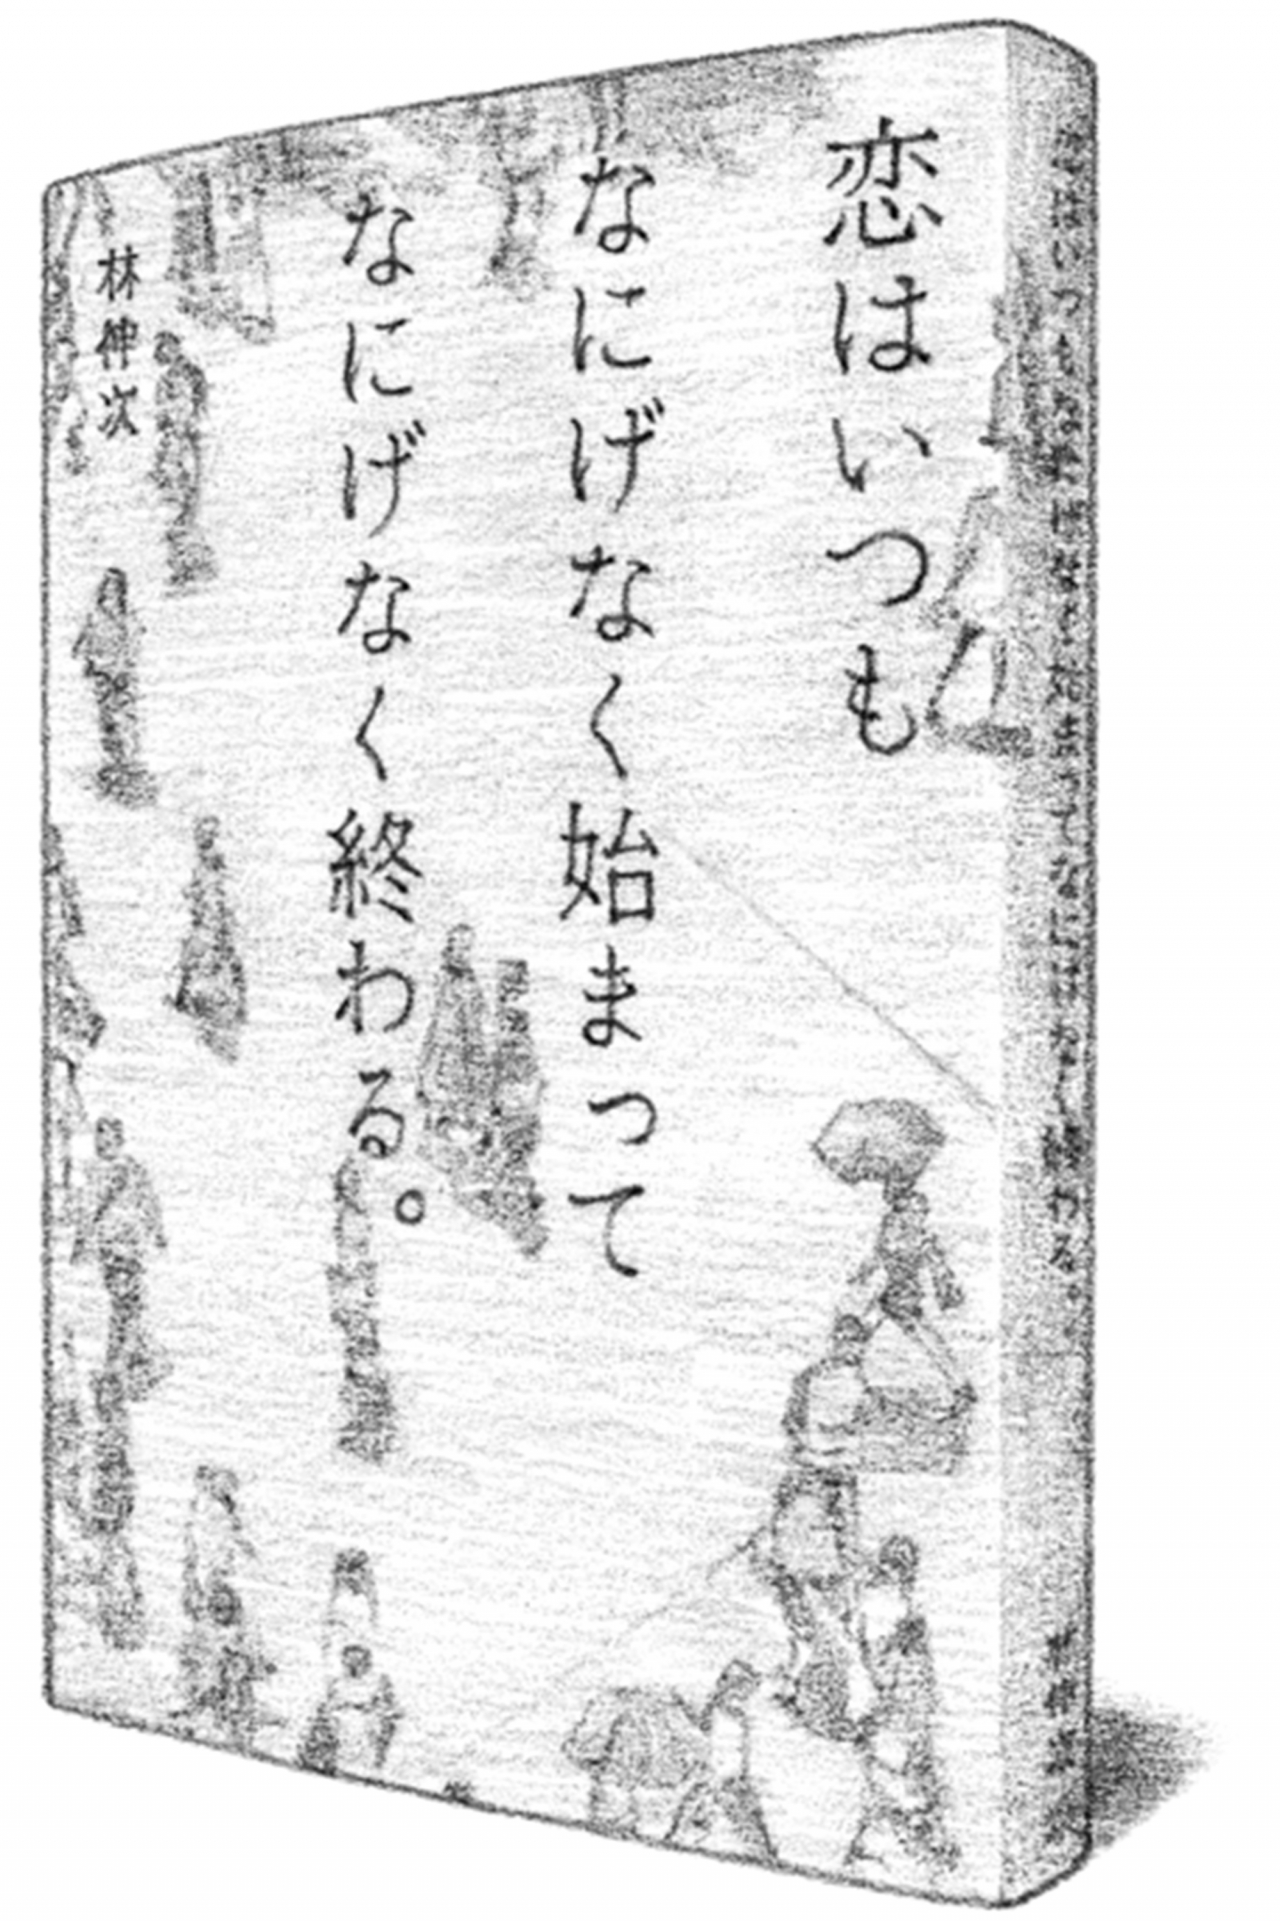 恋はいつも
なにげなく始まって
なにげなく終わる。
林伸次
恋はいつもなにげなく始まってなにげなく終わる。